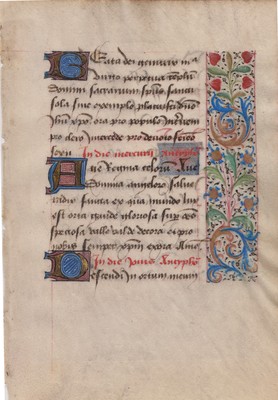 Beata dei genitrix ma
domini sacrarium spus sancti
sola sine exemplo placuisti dno
ihu xpo ora pro populo interveni
pro clero intercede pro devoto femineo
sexu In die mercurii Antyphe
Ave Regina celorum Ave
Domina angelorum salve
radix sancta ex qua mundo lux
est orta gaude gloriosa sup oms
speciosa vale valde decora et pro
nobis semper xpm exora Ave
In die Jovis Antyphe
Descendi in ortum meum